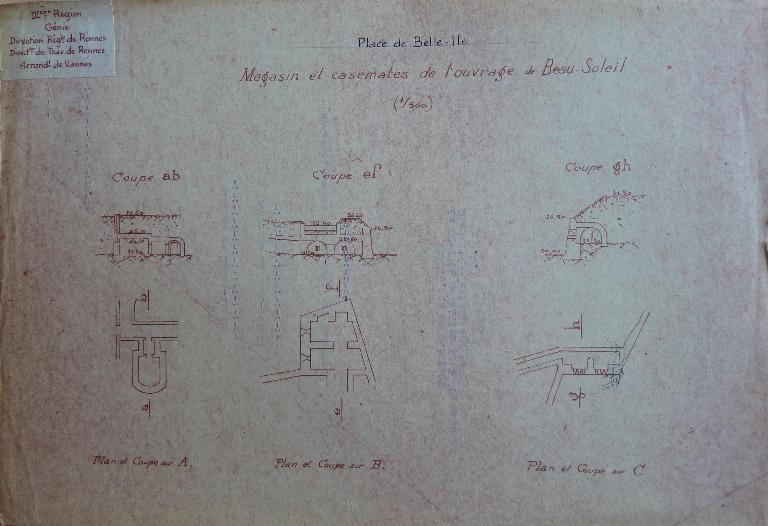 IIIème Région
Génie
Direction Régle de Rennes
Directn de Trav. de Rennes
Arrondt de Vannes
Place de Belle-Ile
Magasin et casemates de l'ouvrage de Beau-Soleil
(1/500)
Coupe ab
Coupe ef
Coupe gh
26,50
31,50
26,50
a
b
e
f
g
h
Plan et Coupe sur A.
Plan et Coupe sur B.
Plan et Coupe sur C